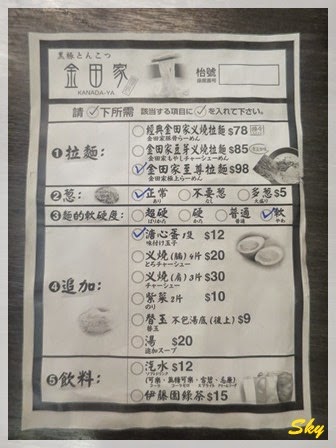 黒豚とんこつ
金田家
KANADA-YA
枱號
請✓下所需 該当する項目に✓を入れて下さい。
❶拉麵:
經典金田家叉燒拉麵 $78
金田家豚骨らーめん
金田家豆芽叉燒拉麵 $85
金田家もやしチャーシューめん
金田家至尊拉麵 $98
金田家極上らーめん
❷葱: 正常 不要葱 多葱 $5
あり なし 大盛り
❸麵的軟硬度: 超硬 硬 普通 軟
ばりかた かた ふつう やわ
❹追加:
溏心蛋1隻 $12
味付け玉子
叉燒(腩)4片 $20
とろチャーシュー
叉燒(肩)3片 $30
チャーシュー
紫菜2片 $10
のり
替玉 不包湯底(後上) $9
替玉
湯 $20
追加スープ
❺飲料:
汽水 $12
ソフトドリンク
伊藤園綠茶 $15
Sky